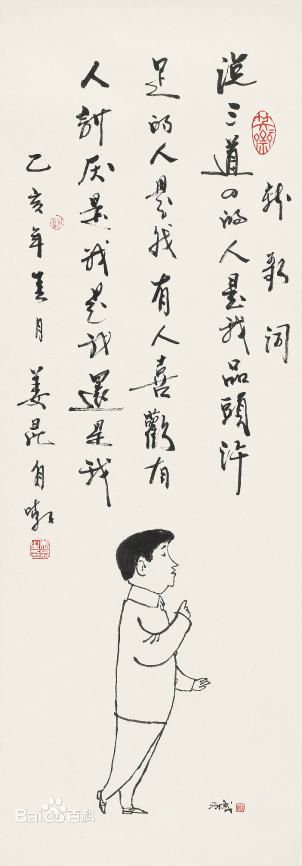 新歌词
说三道四的人是我品頭评
足的人是我有人喜歡有
人討厌是我是我還是我
乙亥年月姜昆自嘲
Bai百科